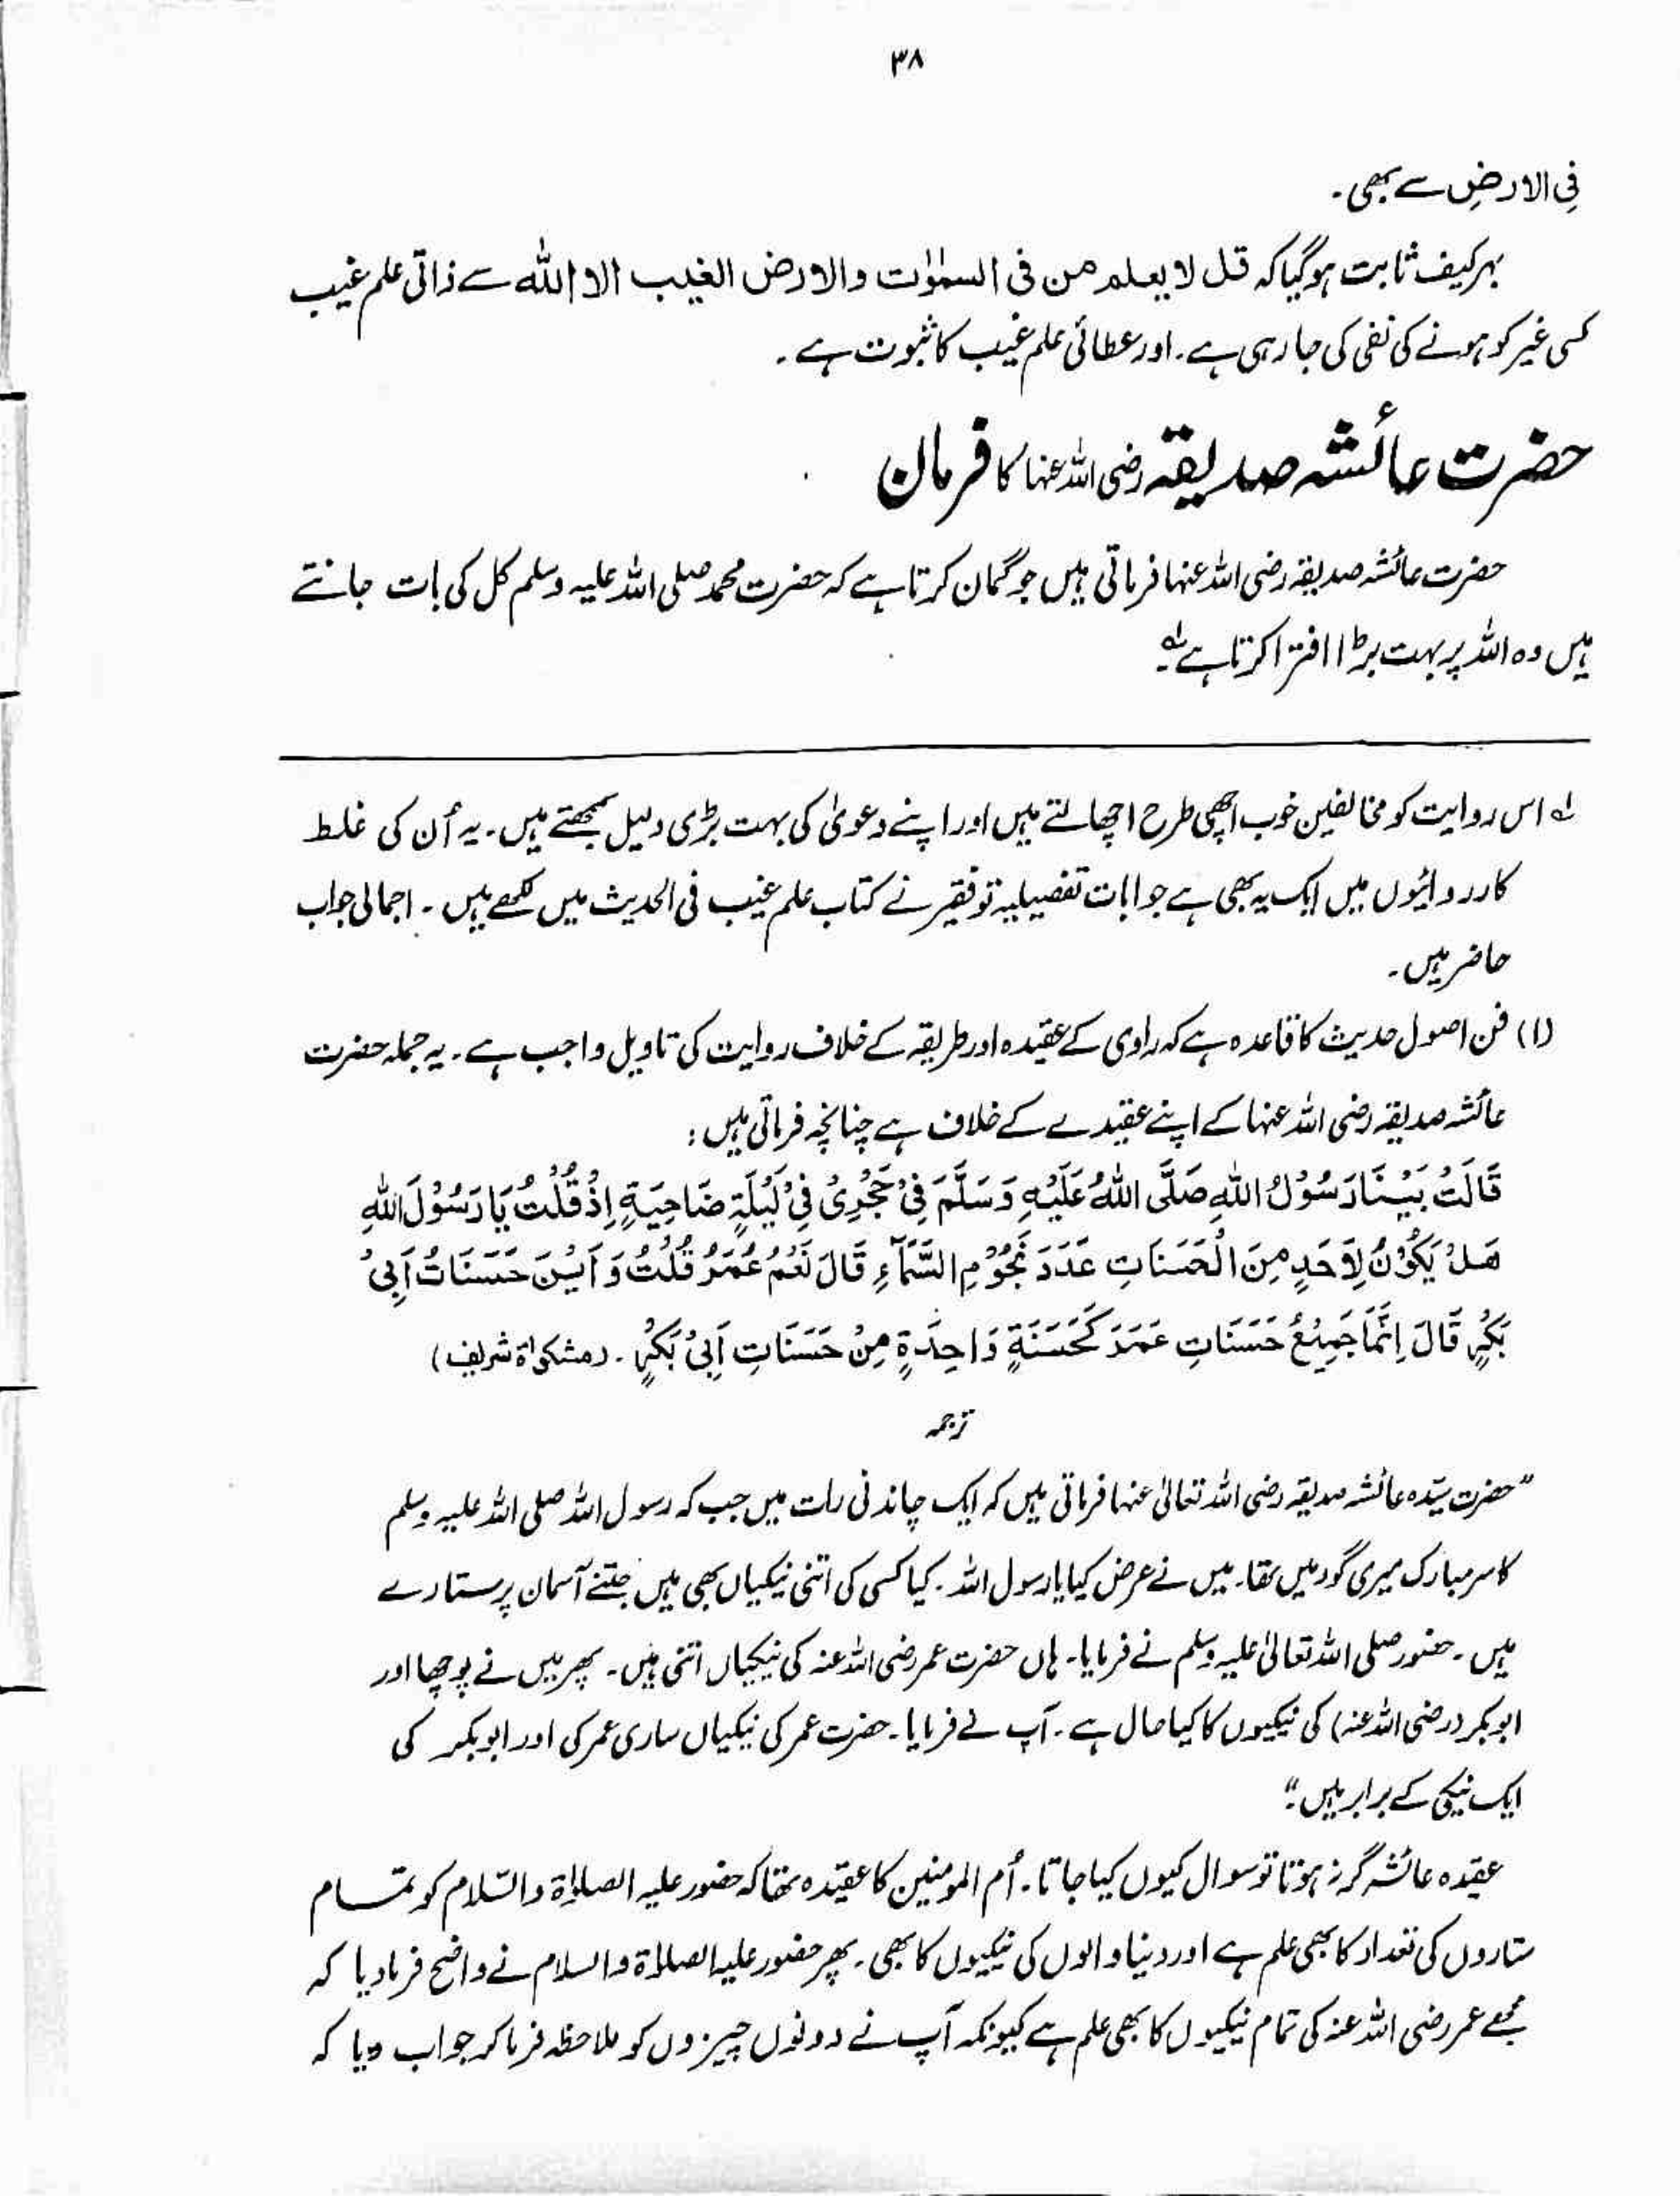 ۳۸
فِی الارضِ سے بھی۔
بہرکیف ثابت ہوگیا کہ قل لا یعلم من فی السمٰوٰت والارض الغیب الا اللہ سے ذاتی علم غیب
کسی غیر کو ہونے کی نفی کی جا رہی ہے۔ اور عطائی علم غیب کا ثبوت ہے۔
حضرت عائشہ صدیقہ رضی اللہ عنہا کا فرمان
حضرت عائشہ صدیقہ رضی اللہ عنہا فرماتی ہیں جو گمان کرتا ہے کہ حضرت محمد صلی اللہ علیہ وسلم کل کی بات جانتے
ہیں وہ اللہ پر بہت بڑا افترا کرتا ہے لہ۔
لہ اس روایت کو مخالفین خوب اچھی طرح اچھالتے ہیں اور اپنے دعویٰ کی بہت بڑی دلیل سمجھتے ہیں۔ یہ اُن کی غلط
کارروائیوں میں ایک یہ بھی ہے جوابات تفصیلیہ تو فقیر نے کتاب علم غیب فی الحدیث میں لکھے ہیں۔ اجمالی جواب
حاضر ہیں۔
(۱) فن اصول حدیث کا قاعدہ ہے کہ راوی کے عقیدہ اور طریقہ کے خلاف روایت کی تاویل واجب ہے۔ یہ جملہ حضرت
عائشہ صدیقہ رضی اللہ عنہا کے اپنے عقیدے کے خلاف ہے چنانچہ فرماتی ہیں:
قَالَتْ بَیْنَا رَسُوْلُ اللہِ صَلَّی اللہُ عَلَیْہِ وَسَلَّمَ فِیْ حَجْرِیْ فِیْ لَیْلَۃٍ ضَاحِیَۃٍ اِذْ قُلْتُ یَا رَسُوْلَ اللہِ
ھَلْ یَکُوْنُ لِاَحَدٍ مِنَ الْحَسَنَاتِ عَدَدَ نُجُوْمِ السَّمَآءِ قَالَ نَعَمْ عُمَرُ قُلْتُ وَاَیْنَ حَسَنَاتُ اَبِیْ
بَکْرٍ قَالَ اِنَّمَا جَمِیْعُ حَسَنَاتِ عُمَرَ کَحَسَنَۃٍ وَاحِدَۃٍ مِنْ حَسَنَاتِ اَبِیْ بَکْرٍ۔ (مشکوٰۃ شریف)
ترجمہ
"حضرت سیّدہ عائشہ صدیقہ رضی اللہ تعالیٰ عنہا فرماتی ہیں کہ ایک چاندنی رات میں جب کہ رسول اللہ صلی اللہ علیہ وسلم
کا سر مبارک میری گود میں تھا۔ میں نے عرض کیا یا رسول اللہ۔ کیا کسی کی اتنی نیکیاں بھی ہیں جتنے آسمان پر ستارے
ہیں۔ حضور صلی اللہ تعالیٰ علیہ وسلم نے فرمایا۔ ہاں حضرت عمر رضی اللہ عنہ کی نیکیاں اتنی ہیں۔ پھر میں نے پوچھا اور
ابوبکر (رضی اللہ عنہ) کی نیکیوں کا کیا حال ہے۔ آپ نے فرمایا۔ حضرت عمر کی نیکیاں ساری عمر کی اور ابوبکر کی
ایک نیکی کے برابر ہیں۔"
عقیدہ عائشہ گر نہ ہوتا تو سوال کیوں کیا جاتا۔ اُم المومنین کا عقیدہ تھا کہ حضور علیہ الصلوٰۃ والسّلام کو تمام
ستاروں کی تعداد کا بھی علم ہے اور دنیا والوں کی نیکیوں کا بھی۔ پھر حضور علیہ الصلوٰۃ والسلام نے واضح فرما دیا کہ
مجھے عمر رضی اللہ عنہ کی تمام نیکیوں کا بھی علم ہے کیونکہ آپ نے دونوں چیزوں کو ملاحظہ فرما کر جواب دیا کہ